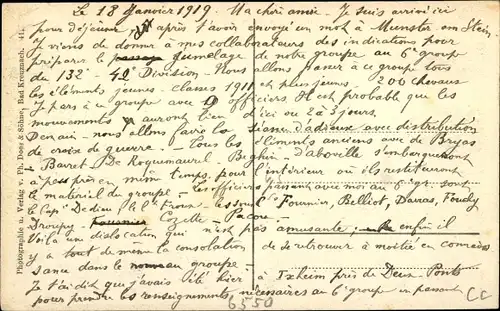 Le 18 Janvier 1919. Ma chère amie Je suis arrivé ici
pour déjeuner après t'avoir envoyé un mot à Munster am Stein,
Je viens de donner à mes collaborateurs des indications pour
préparer le jumelage de notre groupe au 6e groupe
du 132e 42e Division - Nous allons passer à ce groupe
les éléments jeunes classes 1911 et plus jeunes - 200 chevaux
Je pars à ce groupe avec 9 officiers Il est probable que les
mouvements auront lieu d'ici ou 2 à 3 jours.
Demain - nous allons faire la séance d'adieux avec distribution
de croix de guerre - Tous les éléments anciens avec de Bryas
- Baret De Roquemaurel Beghin d'Aboville s'embarqueront
à peu près en même temps pour l'intérieur où ils restitueront
le matériel du groupe - Les officiers passant avec moi au
le Capne Dedieu Fournier, Belliot, Davas, Foudy
Droupy - Cozette - Pacou -
Voilà une dislocation qui n'est pas amusante enfin il
y a tout de même la consolation de se retrouver à moitié en
dans le groupe -
Je t'ai dit que j'avais été hier à Ixheim près de Deux Ponts
pour prendre les renseignements nécessaires au 6e groupe en passant
6550
CC
Photographie u. Verlag v. Ph. Dees & Söhne, Bad Kreuznach. 441.